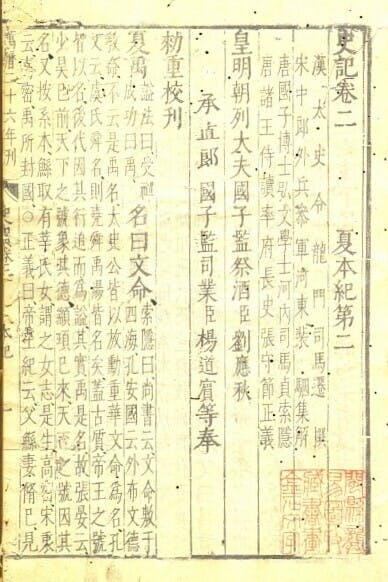 史記卷二 夏本紀第二
漢太史令龍門司馬遷撰
宋中郎外兵參軍河東裴駰集解
唐國子博士弘文學士河內司馬貞索隱
唐諸王侍讀率府長史張守節正義
皇明朝列大夫國子監祭酒臣劉應秋
承直郎國子監司業臣楊道賓等奉
勑重校刊
夏禹 謚法曰受禪成功曰禹 名曰文命 索隱曰尚書云文命敷于四海孔安國云外布文德
教命不云是禹名太史公皆以放勳重華文命為名孔
又云虞氏舜名則堯舜禹湯皆名矣蓋古質帝王之號
皆以名後代因其行追而為謚其實禹是名故張晏云
少昊已前天下之號象其德顓頊已來天下之號因其
名又按系本鯀取有辛氏女謂之女志是生高密宋衷
云高密禹所封國○正義曰帝王紀云父鯀妻脩巳見
二十六年刊 史記卷二 本紀 一